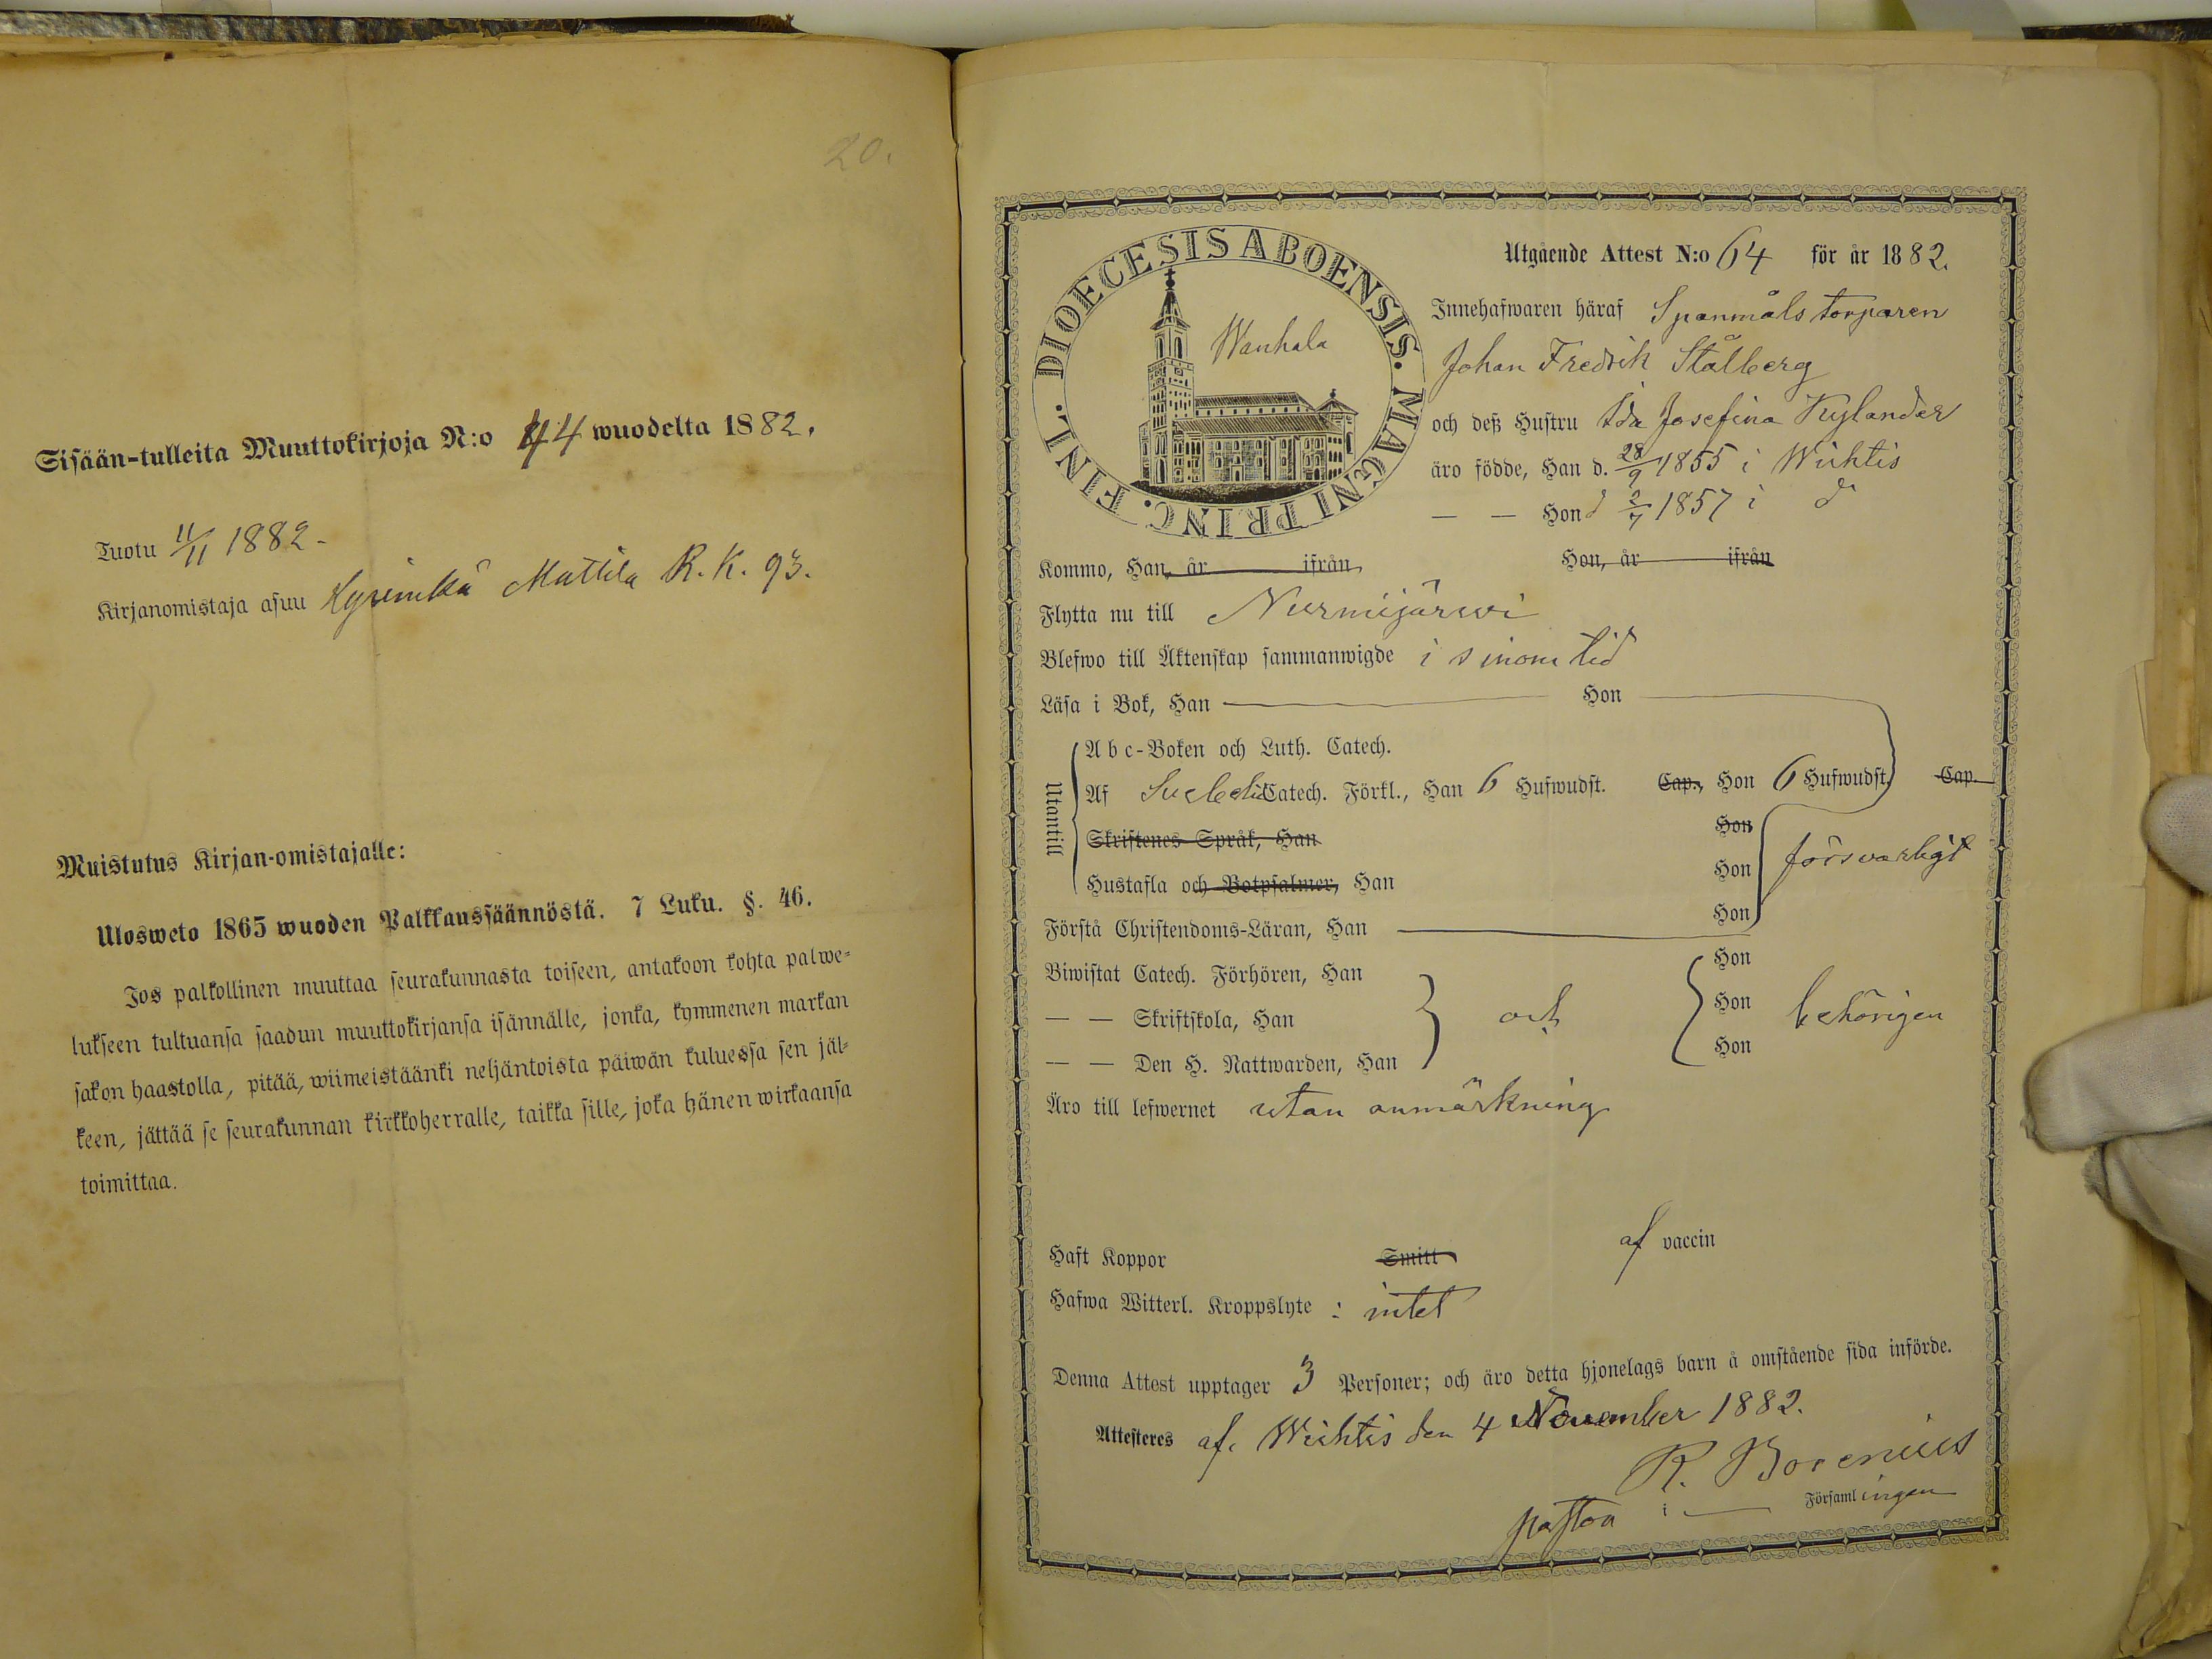 20.
Sisään-tulleita Muuttokirjoja N:o 44 wuodelta 1882.
Tuotu 11/11 1882.
Kirjanomistaja asuu Mattila R. K. 93.
Muistutus Kirjan-omistajalle:
Ulosweto 1865 wuoden Palkkaussäännöstä. 7 Luku. §. 46.
Jos palkollinen muuttaa seurakunnasta toiseen, antakoon kohta palwe-
lukseen tultuansa saadun muuttokirjansa isännälle, jonka, kymmenen markan
sakon haastolla, pitää, wiimeistäänki neljäntoista päiwän kuluessa sen jäl-
keen, jättää se seurakunnan kirkkoherralle, taikka sille, joka hänen wirkaansa
toimittaa.
DIOECESIS ABOENSIS. MAGNI PRINC. FINL.
Wanhala
Utgående Attest N:o 64 för år 1882.
Innehafwaren häraf Spanmåls torparen
Johan Fredrik Stålberg
och deß Hustru Ida Josefina Kylander
äro födde, Han d. 28/9 1855 i Wichtis
— — Hon d 2/7 1857 i d
Kommo, Han, år ifrån Hon, år ifrån
Flytta nu till Nurmijärwi
Blefwo till Äktenskap sammanwigde i sinom tid
Läsa i Bok, Han Hon
Utantill
Abc-Boken och Luth. Catech.
Af Catech. Förkl., Han 6 Hufwudst. Cap., Hon 6 Hufwudst. Cap.
Skriftenes Språk, Han Hon
Hustafla och Botpsalmer, Han Hon försvarligt
Förstå Christendoms-Läran, Han Hon
Biwistat Catech. Förhören, Han Hon
— — Skriftskola, Han och Hon behörigen
— — Den H. Nattwarden, Han Hon
Äro till lefwernet utan anmärkning
Haft Koppor Smitt af vaccin
Hafwa Witterl. Kroppslyte : intet
Denna Attest upptager 3 Personer; och äro detta hjonelags barn å omstående sida införde.
Attesteres af. Wichtis den 4 November 1882.
R. Borenius
pastor i — Församlingen